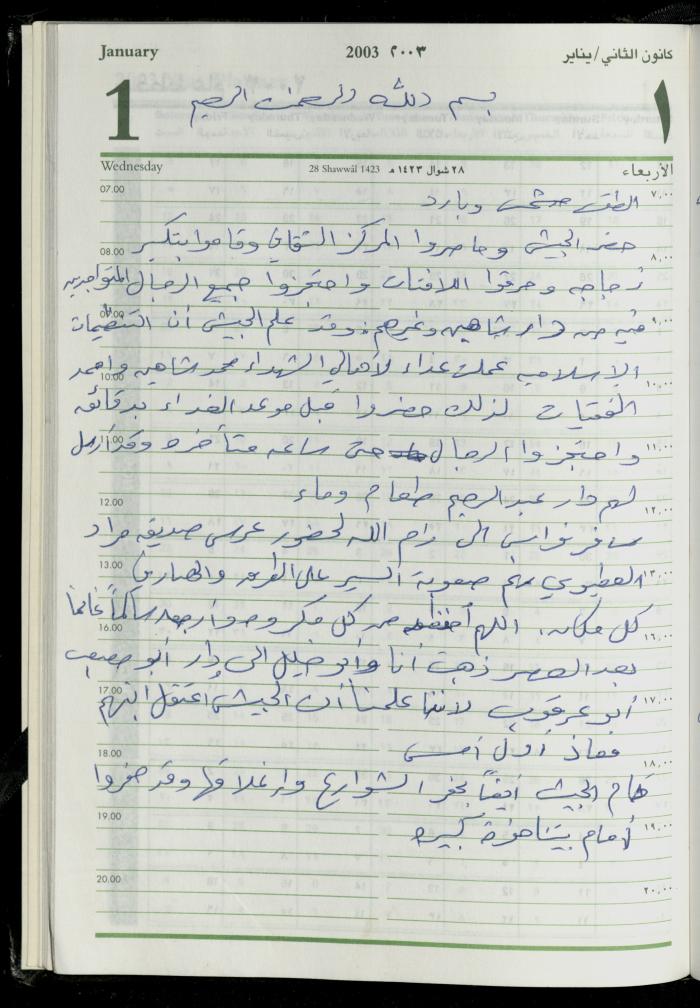 January 2003 ٢٠٠٣ كانون الثاني/يناير
1 بسم الله الرحمن الرحيم ١
Wednesday 28 Shawwâl 1423 ٢٨ شوال ١٤٢٣ هـ الأربعاء
07.00 ٧,٠٠
الطقس مشمس وبارد
حضر الجيش وحاصروا المركز الثقافي وقاموا بتكسير
08.00 ٨,٠٠
زجاجه وحرقوا اللافتات واحتجزوا جميع الرجال المتواجدين
09.00 ٩,٠٠
فيه من دار شاهين وغيرهم، وقد علم الجيش أن التنظيمات
الإسلاميه عملت غذاء لأهالي الشهداء محمد شاهين واحمد
10.00 ١٠,٠٠
الفقيات لذلك حضروا قبل موعد الغداء بدقائق
11.00 ١١,٠٠
واحتجزوا الرجال حتى ساعه متأخره وقد أرسل
لهم دار عبد الرحيم طعام وماء
12.00 ١٢,٠٠
سافر فواس الى رام الله لحضور عرس صديقه مراد
13.00 ١٣,٠٠
العطيوي رغم صعوبة السير على الطرق والحصار في
كل مكان، اللهم احفظه من كل مكروه وارجعه سالماً غانماً
16.00 ١٦,٠٠
بعد العصر ذهبت أنا وأبو خليل الى دار أبو مصعب
17.00 ١٧,٠٠
أبو عرقوب لأننا علمنا أن الجيش اعتقل ابنهم
معاذ أول أمس
18.00 ١٨,٠٠
قام الجيش أيضاً بحفر الشوارع وإغلاقها وقد حفروا
19.00 ١٩,٠٠
أمام بيتنا حفرة كبيره
20.00 ٢٠,٠٠